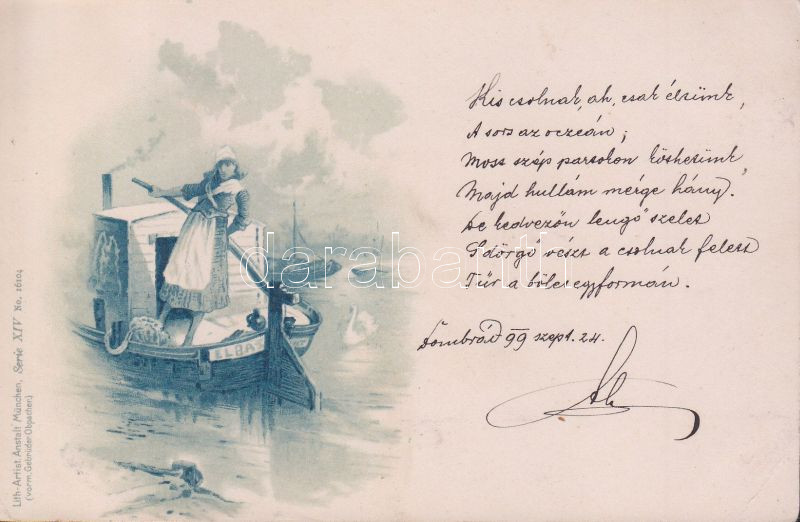 Kis csolnak, ah, csak éltünk,
A sors az oczeán;
Moss szép partokon köthetünk,
Majd hullám mérge hány.
De kedvezőn lengő szelet
S dörgő vészt a csolnak felett
Tűr a bölcs egyformán.
Dombrád 99 szept. 24.
ELBA
Lith.-Artist. Anstalt München, Serie XIV No. 16104
(vorm. Gebrüder Obpacher)
darabanth